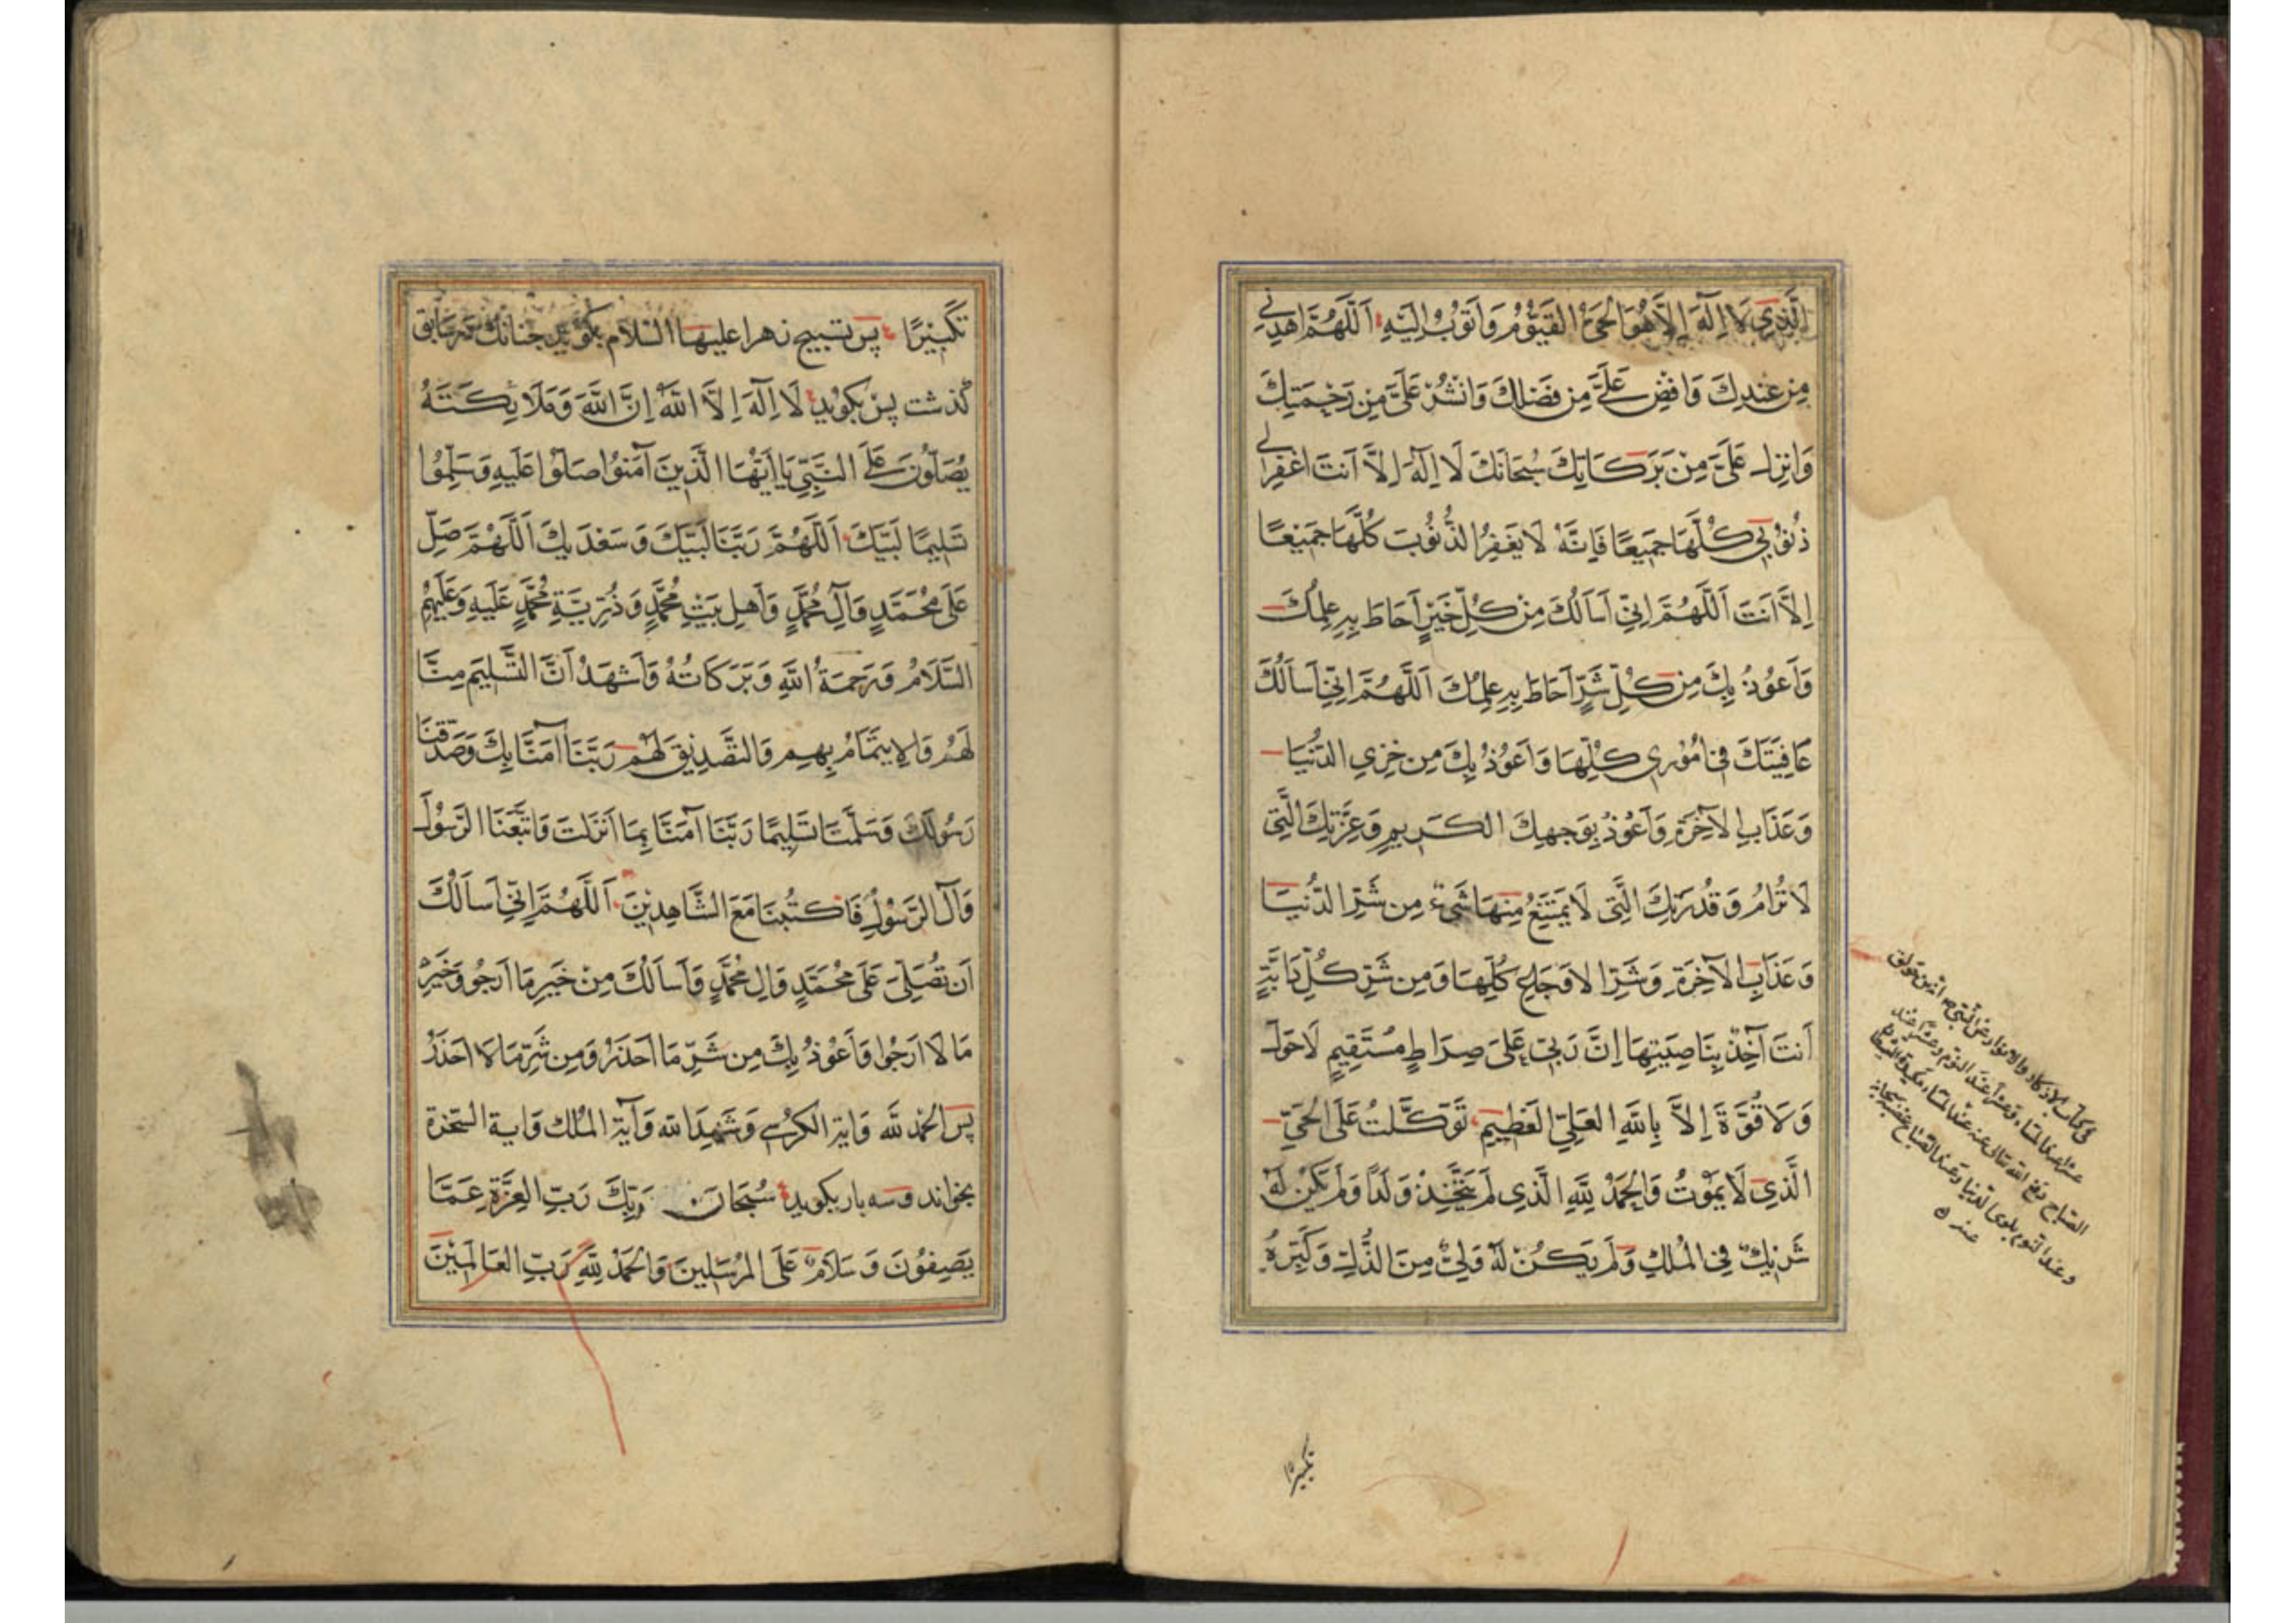 الَّذِي لَا اِلٰهَ اِلَّا هُوَ الْحَيُّ الْقَيُّوْمُ وَاَتُوْبُ اِلَيْهِ اَللّٰهُمَّ اهْدِنِي
مِن عِنْدِكَ وَافِضْ عَلَيَّ مِن فَضْلِكَ وَانْشُرْ عَلَيَّ مِن رَحْمَتِكَ
وَانزِل عَلَيَّ مِنْ بَرَكَاتِكَ سُبْحَانَكَ لَا اِلٰهَ اِلَّا اَنتَ اغْفِرْلِي
ذُنُوْبِي كُلَّهَا جَمِيْعًا فَاِنَّهُ لَا يَغْفِرُ الذُّنُوْبَ كُلَّهَا جَمِيْعًا
اِلَّا اَنتَ اَللّٰهُمَّ اِنِّي اَسَالُكَ مِنْ كُلِّ خَيْرٍ اَحَاطَ بِهِ عِلمُكَ
وَاَعُوْذُ بِكَ مِن كُلِّ شَرٍّ اَحَاطَ بِهِ عِلمُكَ اَللّٰهُمَّ اِنِّي اَسَالُكَ
عَافِيَتَكَ فِي اُمُوْرِي كُلِّهَا وَاَعُوْذُ بِكَ مِن خِزيِ الدُّنْيَا
وَعَذَابِ الآخِرَةِ وَاَعُوْذُ بِوَجهِكَ الكَرِيمِ وَعِزَّتِكَ الَّتِي
لَا تُرَامُ وَقُدرَتِكَ الَّتِي لَا يَمْتَنِعُ مِنْهَا شَيْءٌ مِن شَرِّ الدُّنْيَا
وَعَذَابِ الآخِرَةِ وَشَرِّ الاَوجَاعِ كُلِّهَا وَمِن شَرِّ كُلِّ دَابَّةٍ
اَنتَ آخِذٌ بِنَاصِيَتِهَا اِنَّ رَبِّي عَلىٰ صِرَاطٍ مُسْتَقِيمٍ لَا حَولَ
وَلَا قُوَّةَ اِلَّا بِاللّٰهِ العَلِيِّ العَظِيمِ تَوَكَّلتُ عَلَى الحَيِّ
الَّذِي لَا يَمُوْتُ وَالحَمْدُ لِلّٰهِ الَّذِي لَمْ يَتَّخِذْ وَلَدًا وَلَم يَكُنْ لَهُ
شَرِيْكٌ فِي المُلكِ وَلَم يَكُنْ لَهُ وَلِيٌّ مِنَ الذُّلِّ وَكَبِّرهُ
تَكْبِيْرًا پس تسبيح زهرا عليها السلام بكويد جنانك در سابق
كذشت پس بكويد لَا اِلٰهَ اِلَّا اللّٰهُ اِنَّ اللّٰهَ وَمَلَايِكَتَهُ
يُصَلُّونَ عَلَى النَّبِيِّ يَا اَيُّهَا الَّذِينَ آمَنُوا صَلُّوا عَلَيهِ وَسَلِّمُوا
تَسلِيمًا لَبَّيكَ اَللّٰهُمَّ رَبَّنَا لَبَّيْكَ وَسَعْدَيكَ اَللّٰهُمَّ صَلِّ
عَلَى مُحَمَّدٍ وَآلِ مُحَمَّدٍ وَاَهلِ بَيْتِ مُحَمَّدٍ وَذُرِّيَّةِ مُحَمَّدٍ عَلَيهِ وَعَلَيْهِمُ
السَّلَامُ وَرَحمَةُ اللّٰهِ وَبَرَكَاتُهُ وَاَشهَدُ اَنَّ التَّسلِيمَ مِنَّا
لَهُمْ وَالاِيتِمَامَ بِهِم وَالتَّصْدِيْقَ لَهُمْ رَبَّنَا آمَنَّا بِكَ وَصَدَّقنَا
رَسُولَكَ وَسَلَّمنَا تَسلِيمًا رَبَّنَا آمَنَّا بِمَا اَنزَلتَ وَاتَّبَعنَا الرَّسُوْلَ
وَآلَ الرَّسُوْلِ فَاكتُبنَا مَعَ الشَّاهِدِيْنَ اَللّٰهُمَّ اِنِّي اَسَالُكَ
اَن تُصَلِّيَ عَلَى مُحَمَّدٍ وَالِ مُحَمَّدٍ وَاَسَالُكَ مِنْ خَيرِ مَا اَرجُو وَخَيْرِ
مَا لَا اَرجُوا وَاَعُوْذُ بِكَ مِن شَرِّ مَا اَحذَرُ وَمِن شَرِّ مَا لَا اَحذَرُ
پس الحَمْدُ لِلّٰه وَايَة الكُرسي وَشَهِدَ اللّٰه وَآيَة المُلك وَاية السخرة
بخواند وسه بار بكويد سُبحَانَ رَبِّكَ رَبِّ العِزَّةِ عَمَّا
يَصِفُوْنَ وَسَلَامٌ عَلَى المُرسَلِينَ وَالحَمْدُ لِلّٰهِ رَبِّ العَالَمِيْنَ
تكبيرا